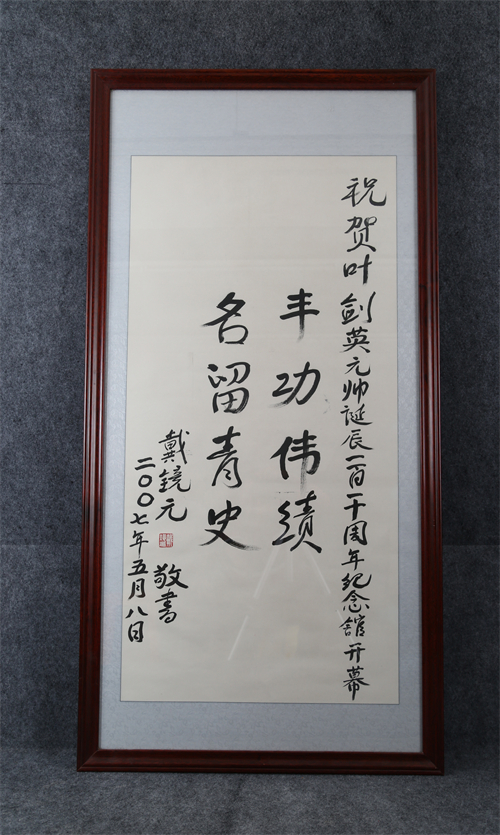 祝贺叶剑英元帅诞辰一百一十周年纪念馆开幕
丰功伟绩
名留青史
戴镜元 敬书
二〇〇七年五月八日